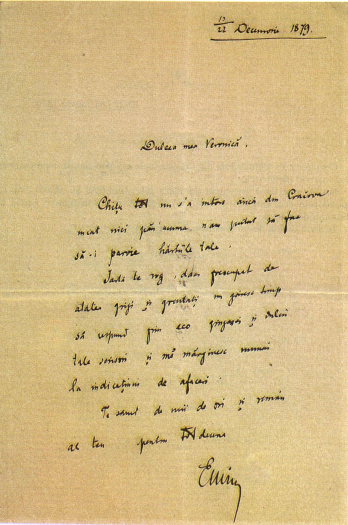 10/22 Decemvrie 1879.
Dulcea mea Veronică,
Chițu tot nu s'a întors încă din Craiova
încât nici până acuma n'am putut să fac
să-i parvie hârtiile tale.
Iartă te rog, dacă preocupat de
atâtea griji și greutăți nu găsesc timp
să respund prin eco gingașei și dulcii
tale scrisori și mĕ mărginesc numai
la indicațiuni de afaceri.
Te sărut de mii de ori și rămân
al tĕu pentru totdeauna
Emin